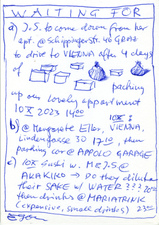 WAITING FOR
a) J.S. to come down from her
apt. @ Schippingerstr. 40 GRAZ
to drive to VIENNA after 4 days
of
packing
up our lovely appartment
10 X 2023 14:00
10X:
b) @ Margarete Eller, VIENNA,
Lindengasse 30 17:10, then
parking car @ APOLLO GARAGE
c) 10X sushi w. ME+JS @
AKAKIKO → Do they dilute
their SAKE w/ WATER???
then drinks @ MARIATRINK
(expensive, small drinks)